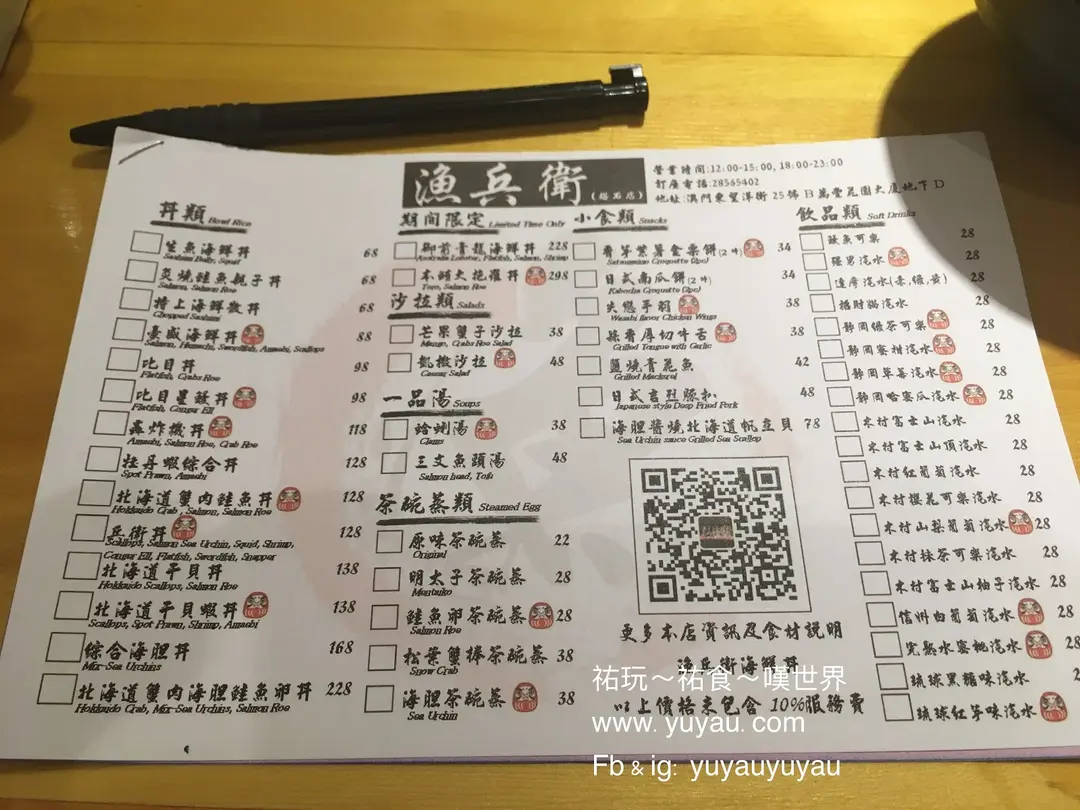 漁兵衛
營業時間:12:00-15:00, 18:00-23:00
訂座電話:28565402
地址:澳門東望洋街25號B萬豐花園大廈地下D
丼類 Bowl Rice
生魚海鮮丼 68
Squid
炙燒鮭魚親子丼 68
Salmon, Salmon Roe
68
Chopped Sashimi
豪威海鮮丼 88
Salmon, Hamachi, Swordfish, Amaebi, Scallops
比目丼 98
Flatfish, Crab Roe
98
Flatfish, Conger Ell
轟炸機丼 118
Amaebi, Salmon Roe, Crab Roe
牡丹蝦綜合丼 128
Spot Prawn, Amaebi
北海道蟹肉鮭魚丼 128
Hokkaido Crab, Salmon, Salmon Roe
兵衛丼 128
Scallops, Salmon Sea Urchin, Squid, Shrimp,
Conger Ell, Flatfish, Swordfish, Snapper
北海道干貝丼 138
Hokkaido Scallops, Salmon Roe
北海道干貝蝦丼 138
Scallops, Spot Prawn, Shrimp, Amaebi
綜合海胆丼 168
Mix-Sea Urchins
北海道蟹肉海胆鮭魚卵丼 228
Hokkaido Crab, Mix-Sea Urchins, Salmon Roe
期間限定 Limited Time Only
御前青龍海鮮丼 228
Australia Lobster, Flatfish, Salmon, Shrimp
298
Toro, Salmon Roe
沙拉類 Salads
芒果蟹子沙拉 38
Mango, Crab Roe Salad
凱撒沙拉 48
Caesar Salad
一品湯 Soups
蛤蜊湯 38
Clams
三文魚頭湯 48
Salmon head, Tofu
茶碗蒸類 Steamed Egg
原味茶碗蒸 22
Original
明太子茶碗蒸 28
Mentaiko
鮭魚卵茶碗蒸 28
Salmon Roe
松葉蟹棒茶碗蒸 38
Snow Crab
海胆茶碗蒸 38
Sea Urchin
小食類 Snacks
香芋紫薯金棗餅(2件) 34
Croquette (2pc)
日式南瓜餅(2件) 34
Kabocha Croquette (2pc)
失戀手羽 38
Wasabi flavor Chicken Wings
蒜香厚切牛舌 38
Grilled Tongue with Garlic
鹽燒青花魚 42
Grilled Mackerel
日式吉烈豚扒 48
Japanese style Deep Fried Pork
海胆醬燒北海道帆立貝 78
Sea Urchin sauce Grilled Sea Scallop
更多本店資訊及食材說明
漁兵衛海鮮丼
以上價格未包含 10%服務費
飲品類 Soft Drinks
28
28
達摩汽水 28
招財貓汽水 28
靜岡綠茶可樂 28
靜岡蜜柑汽水 28
靜岡草莓汽水 28
靜岡哈蜜瓜汽水 28
木村富士山汽水 28
木村富士山頂汽水 28
木村紅葡萄汽水 28
木村櫻花可樂汽水 28
木村山梨葡萄汽水 28
木村抹茶可樂汽水 28
木村富士山柚子汽水 28
信州白葡萄汽水 28
完熟水蜜桃汽水 28
琉球黑糖味汽水
琉球紅芋味汽水
祐玩～祐食～嘆世界
www. yuyau. com
Fb & ig: yuyauyuyau